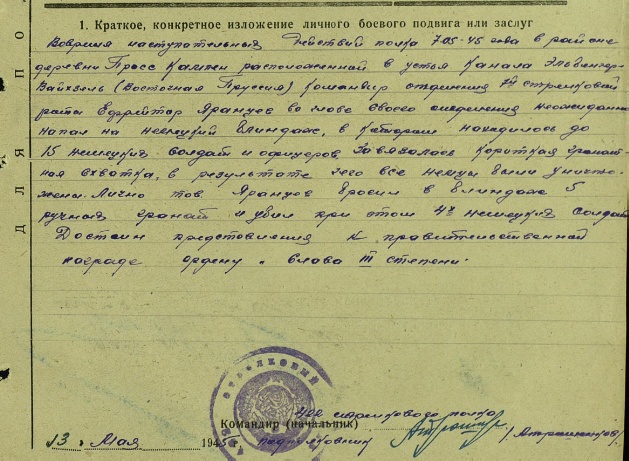 1. Краткое, конкретное изложение личного боевого подвига или заслуг
Вовремя наступательных действий полка 7.05.45 года в районе
деревни Гросс Кампен расположенной в устья Канала Эльбингер-
Вайхзель (Восточная Пруссия) Командир отделения 7й стрелковой
роты Ефрейтор Яранцев во главе своего отделения неожиданно
напал на немецкий блиндаж, в котором находилось до
15 немецких солдат и офицеров. Завязалась короткая гранат-
ная схватка, в результате чего все немцы были уничто-
жены. Лично тов. Яранцев бросил в блиндаж 5
ручных гранат и убил при этом 4х немецких солдат
Достоин представления к правительственной
награде ордену "Слава III степени.
Д Л Я П О
СТРЕЛКОВЫЙ
стрелкового полка
Командир (начальник)
подполковник
13 Мая 1945